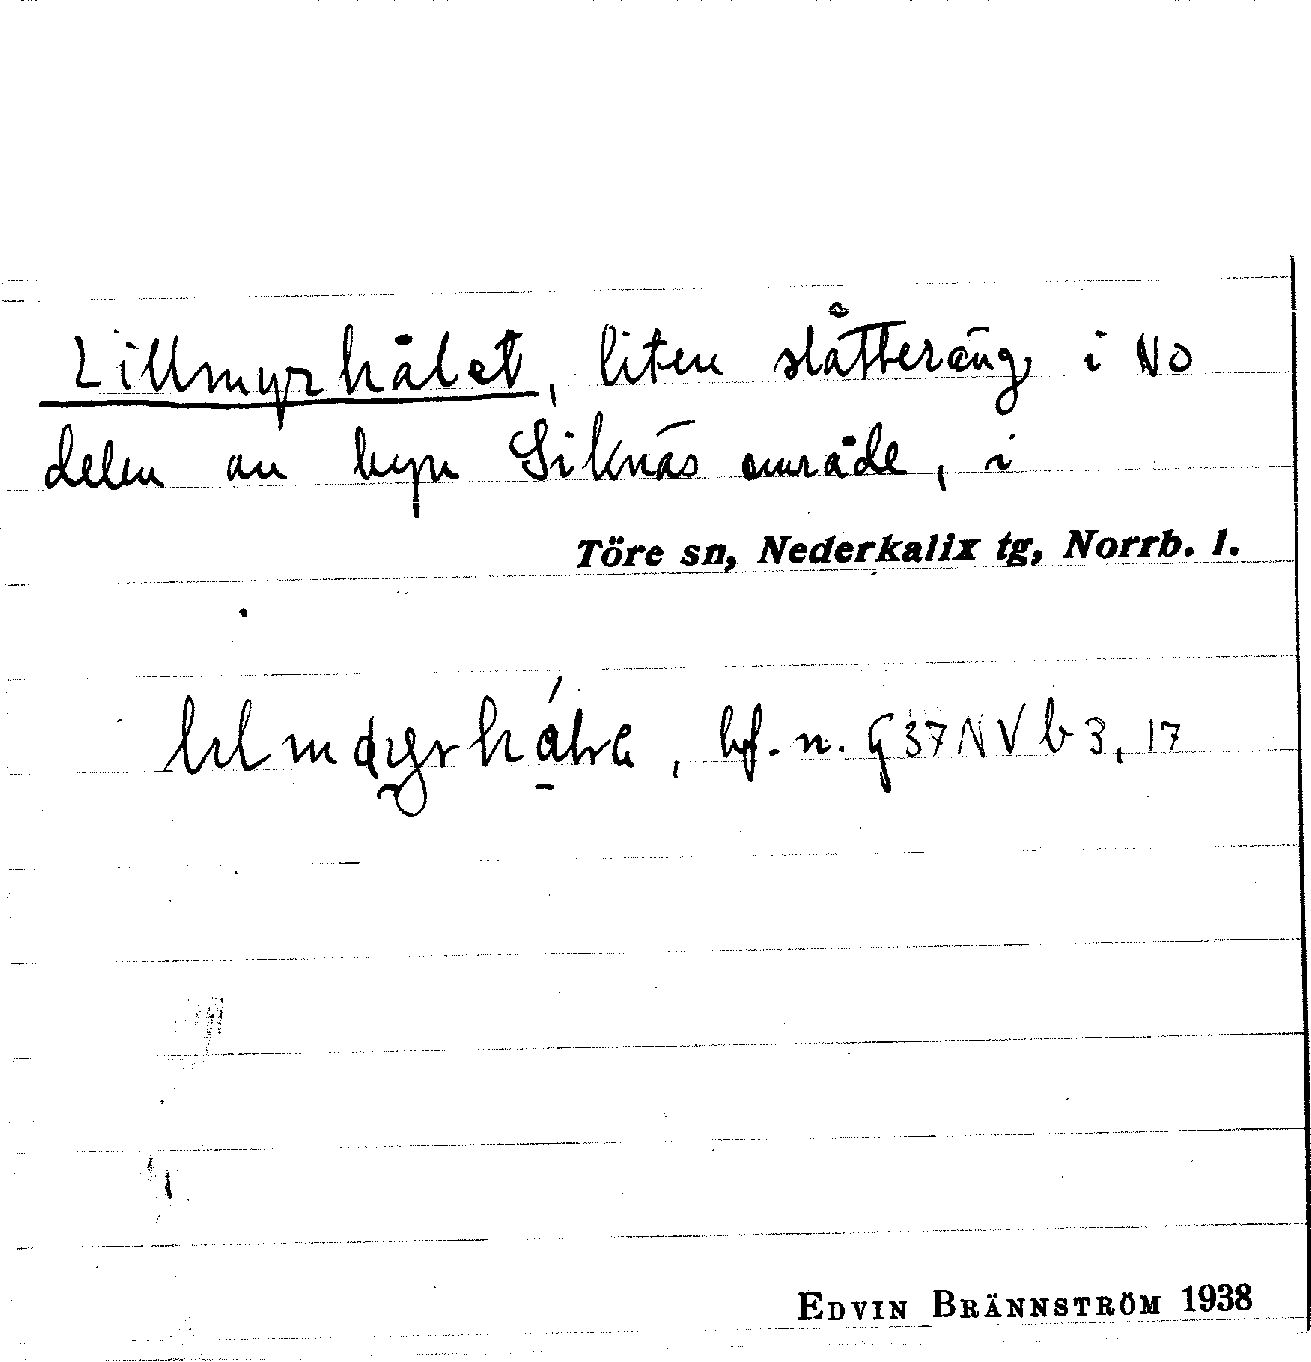 Lillmyrhålet, liten slåtteräng i NO
delen av byn Siknäs område, i
Töre sn, Nederkalix tg, Norrb. l.
, bf. n. G 37 NV b 3, 17
EDVIN BRÄNNSTRÖM 1938